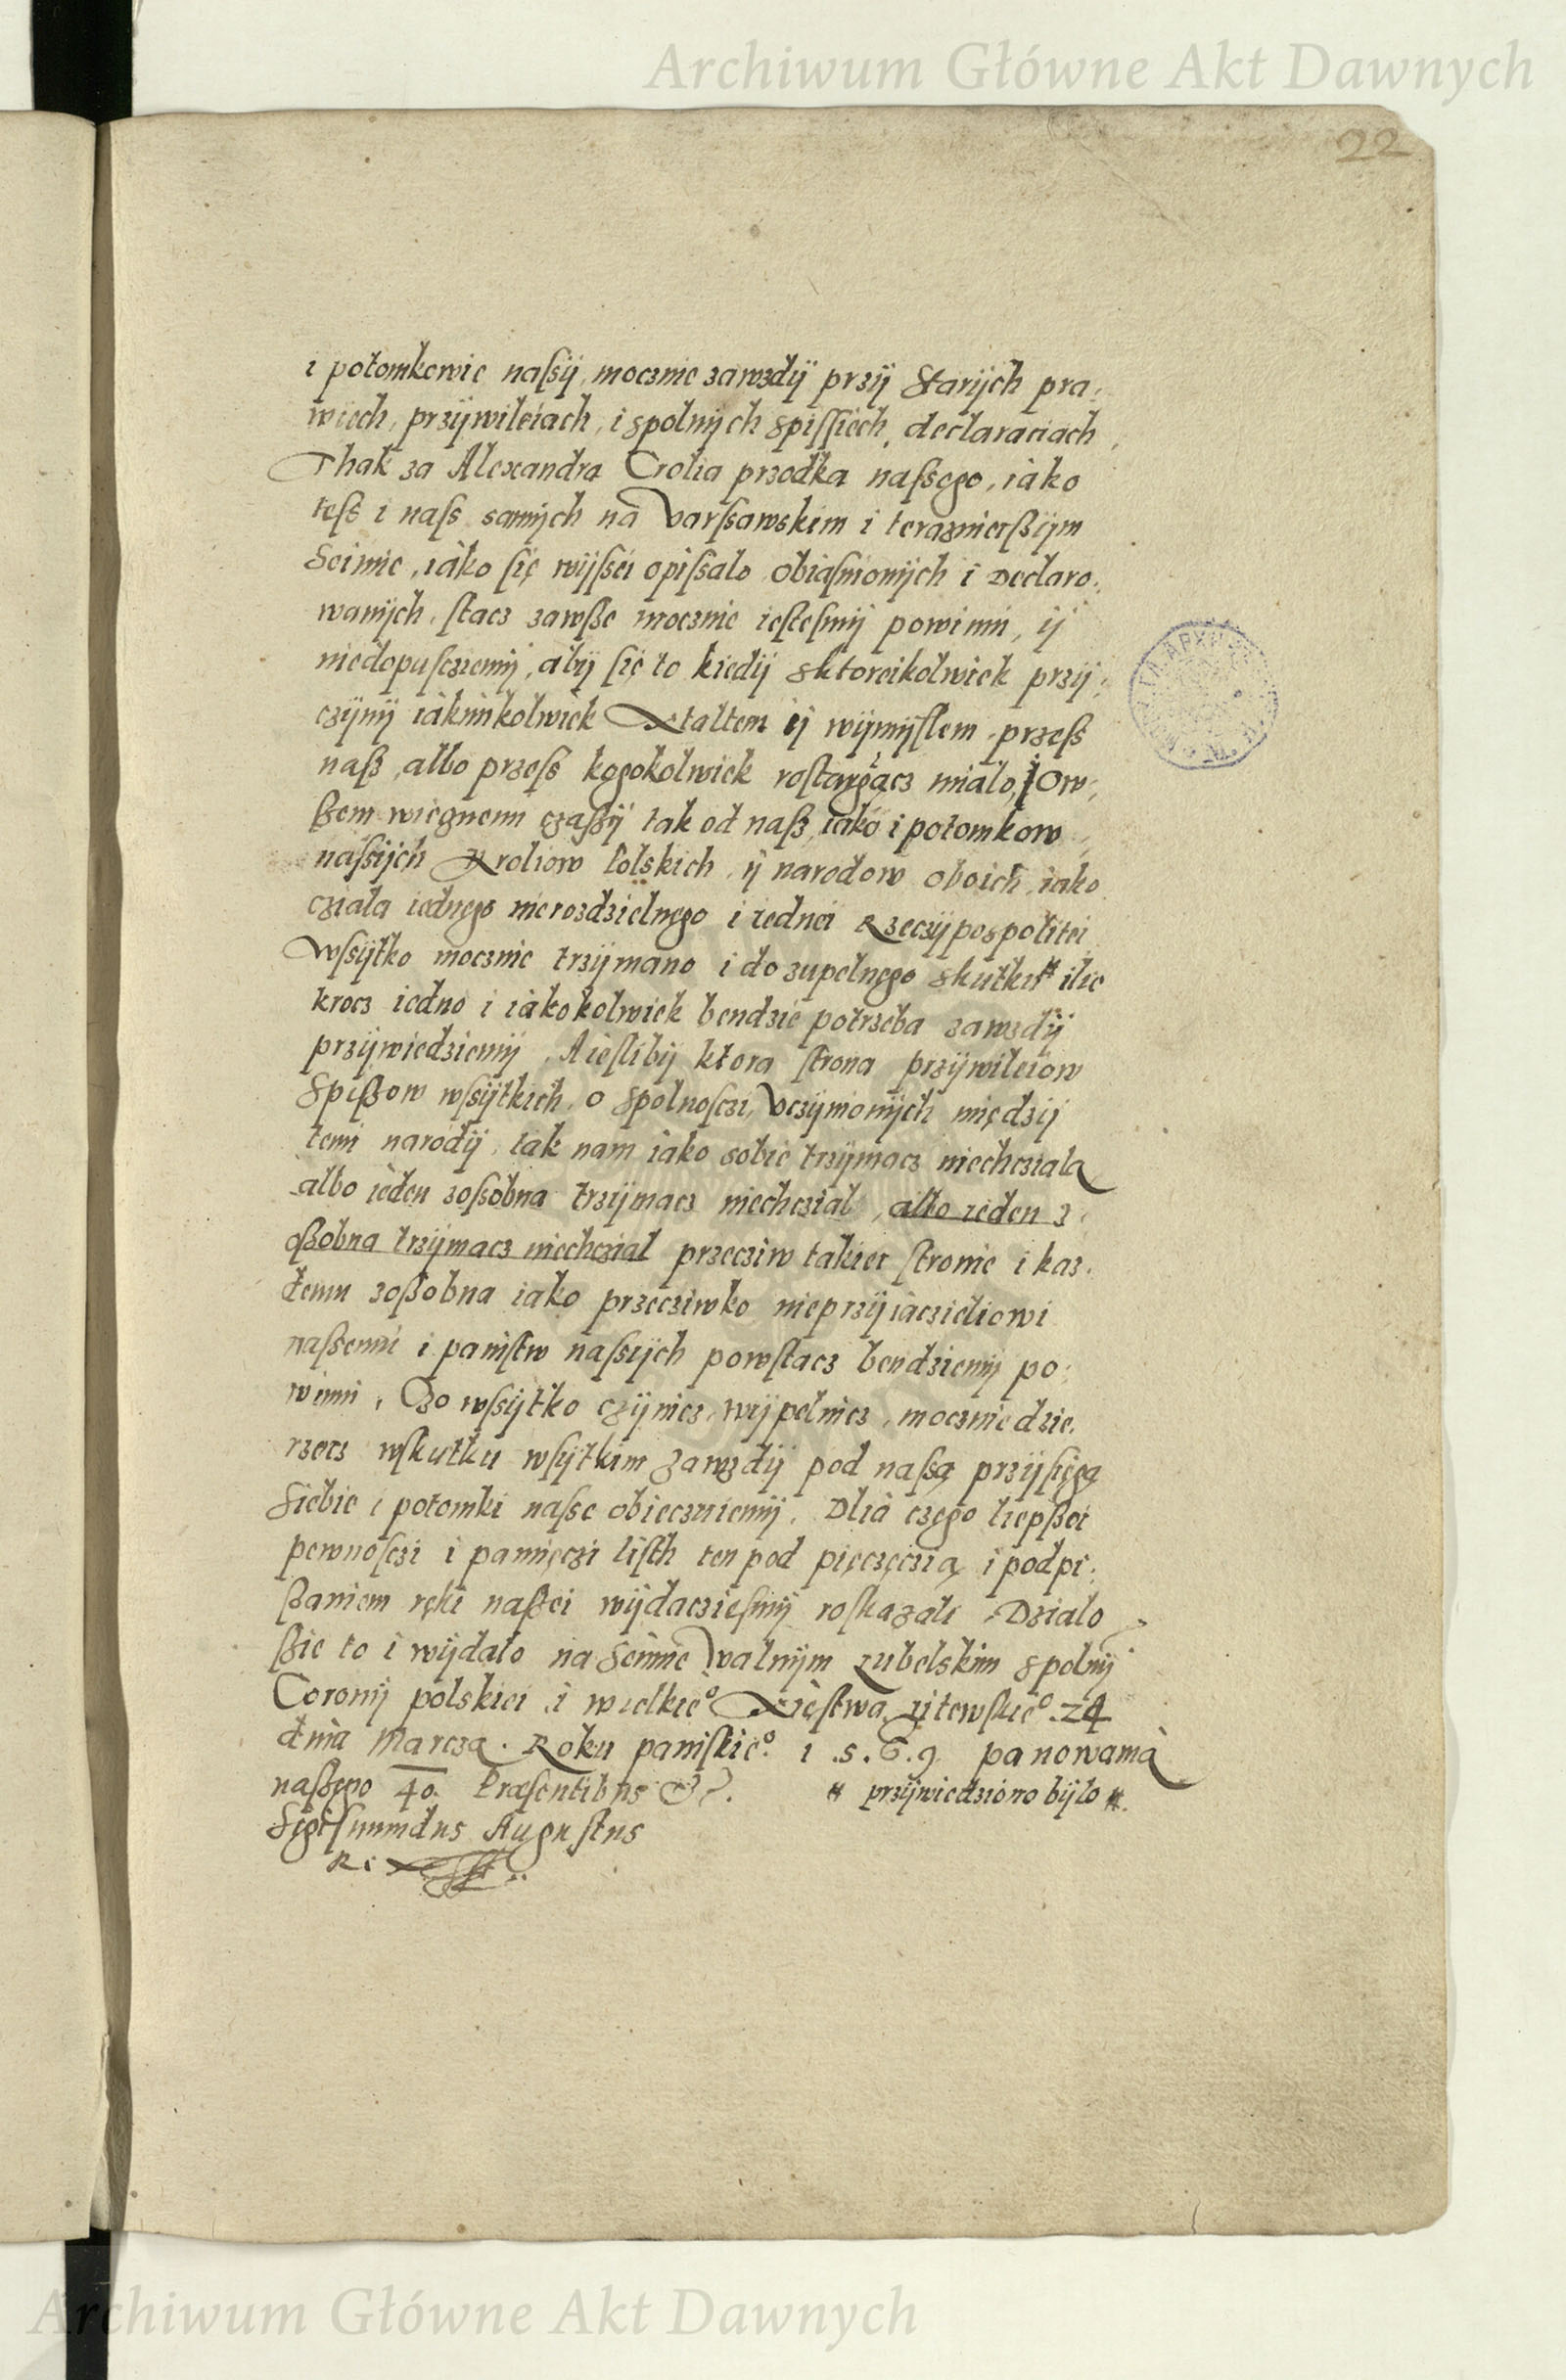 Archiwum Główne Akt Dawnych
22
i potomkowie naſsÿ, mocznie zawzdÿ przÿ starÿch pra:
wiech, przÿwileiach, i spolnÿch spiſſiech, declaraciach,
Thak za Alexandra Crolia przodka naſsego, iako
teſs i naſs samÿch na Varſsawskim i teraznierſßÿm
Seimie, iako się wÿſsei opiſsalo obiaſnionÿch i Declaro:
wanÿch, ſtacz zawſße mocznie ieſteſmÿ powinni, ÿ
niedopuſcziemÿ, abÿ ſię to kiedÿ sktoreikolwiek przÿ:
czÿnÿ iakimkolwiek Xtaltem ÿ wÿmÿſlem, przeſs
naß, albo przeſs kogokolwiek roſtargącz mialo, Ow:
ßem wiecznemi czaßÿ tak od naß, iako i potomkow
naſsÿch Kroliow Polskich, ÿ narodow oboich, iako
cziala iednego nierozdzielnego i iednei Rzeczÿpospolitei
Wſsÿtko mocznie trzÿmano i do zupelnego skutku # ilie
krocz iedno i iakokolwiek bendzie potrzeba zawzdÿ
przÿwiedziemÿ. A ieſlibÿ ktora ſtrona przÿwileiow
Spißow wſsÿtkich, o spolnoſczi, Vczÿnionÿch międzÿ
temi narodÿ, tak nam iako sobie trzÿmacz niechcziala
albo ieden zoſsobna trzÿmacz niechczial, albo ieden z
oßobna trzÿmacz niechczial przecziw takiei ſtronie i kaz:
demu zoßobna iako przecziwko nieprzÿiaczieliowi
naßemu i panſtw naſsÿch powſtacz bendziemÿ po:
winni, Czo wſsÿtko czÿnicz, wÿpelnicz, mocznie dzie:
rzecz wſkutku wſsÿtkim zawzdÿ pod naſsą przÿſięgą
Siebie i potomki naſse obieczuiemÿ. Dlia czego liepßei
pewnoſczi i pamięczi liſth ten pod pieczęczią i podpi:
ßaniem ręki naßei wÿdaczieſmÿ roſkazali. Dzialo
ßie to i wÿdalo na Seimie Walnÿm Lubelskim spolnÿ
Coronÿ polskiei i wielkieº Xięſtwa Litewſkieº. 24
dnia Marcza. Roku panſkieº. 1.5.6.9. panowania
naßego 40. Præsentibus &c. # przÿwiedziono bÿlo #.
Sigiſmundus Auguſtus
Rex
Archiwum Główne Akt Dawnych